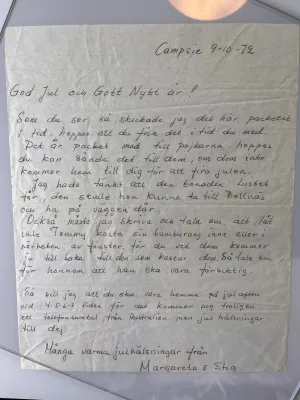 Campsie 9-10-72
God Jul och Gott Nytt År!
Som du ser så skickade jag det här packetet
i tid, hoppas att du fice det i tid du med.
Det är packet med till pojkarna, hoppes
du kan sända det till dem, om dom inte
kommer hem till dig för att fira julen.
Jag hade tänkt att den bonaden
för, den skulle hon kunna ta till Bollnäs
och ha på väggen där.
Också måste jag skriva och tala om, att låt
inte Tommy kasta sin bumerang inne eller i
närheten av fönster, för du vet dem kommer
ju till baka, till den som kastar dem. Så tala om
för honnom att han ska vara försiktig.
Så vill jag att du ska vara hemma på julafton
vid 4-5-6-7 tiden för det kommer nog troligen
ett telefonsamtal från Australien men jul hälsningar
till dej
Många varma julhälsningar från
Margareta & Stig